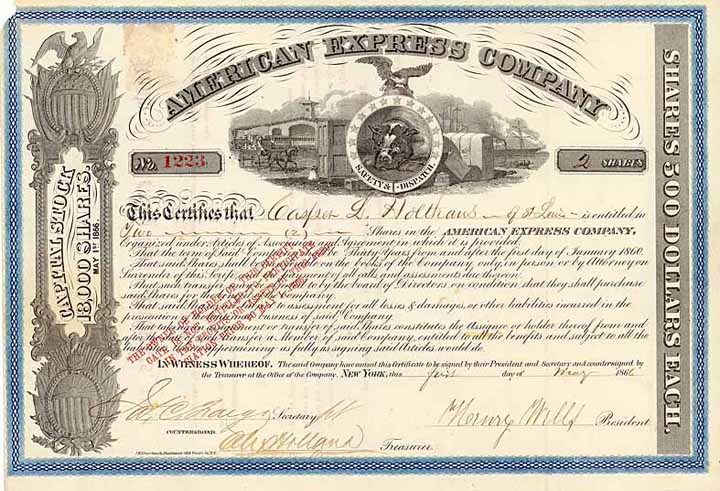 AMERICAN EXPRESS COMPANY
CAPITAL STOCK
18,000 SHARES.
MAY 1ST 1866
SHARES 500 DOLLARS EACH.
No. 1223
SAFETY & DISPATCH
2 SHARES
This Certifies that Casper L. Holthaus of St Louis is entitled to
Two (2) Shares in the AMERICAN EXPRESS COMPANY,
Organized under Articles of Agreement in which it is provided,
That the term of said Company Thirty Years from and after the first day of January 1860.
That said Shares shall the Books of the Company only, in person or by Attorney on
Surrender of this Scrip, payment of all calls and assessments thereon.
That such transfer to by the board of Directors on condition that they shall purchase
said share for the Company.
That said to assessment for all losses & damages, or other liabilities incurred in the
prosecution business of said Company.
That transfer of said shares constitutes the Assignee or holder thereof from and
after a Member of said Company, entitled to all the benefits and subject to all the
appertaining as fully as signing said Articles would do.
IN WITNESS WHEREOF. The said Company have caused this Certificate to be signed by their President and Secretary and countersigned by
the Treasurer at the Office of the Company. NEW YORK, this first day of May 1866
Secretary Henry Wells President
COUNTERSIGNED.
Alex Holland Treasurer.